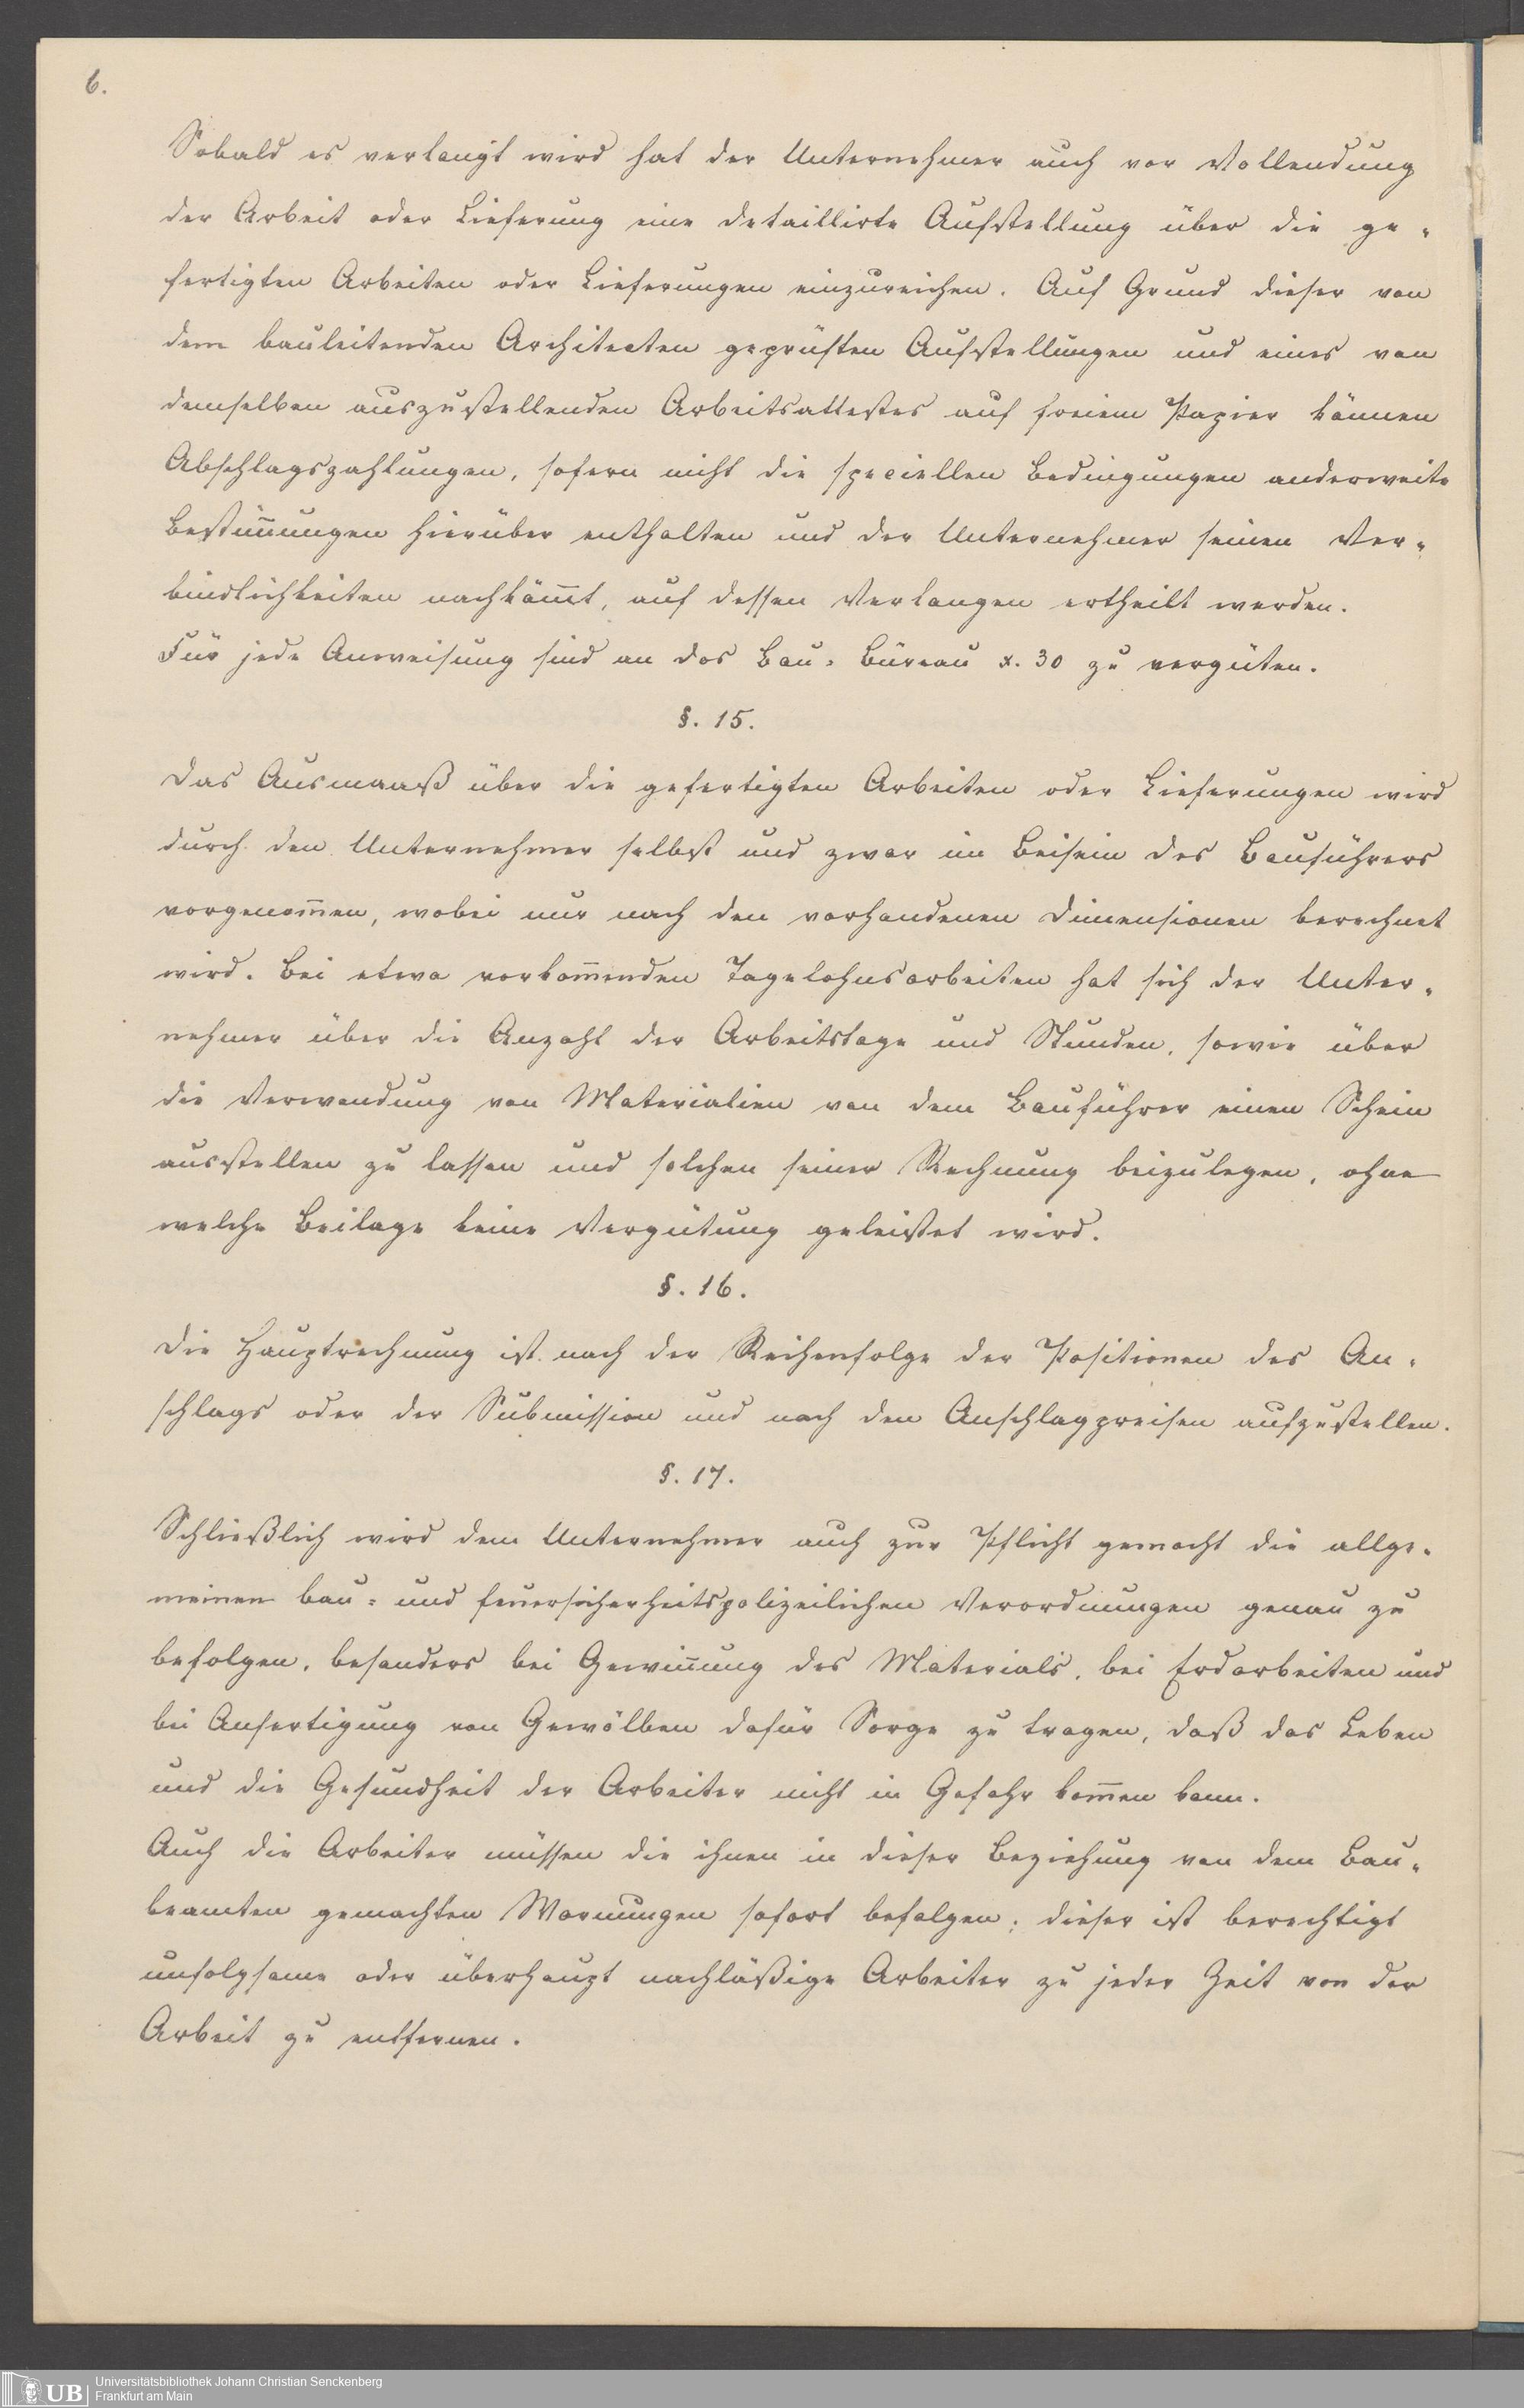 6.
Sobald es verlangt wird hat der Unternehmer auch vor Vollendung
der Arbeit oder Lieferung eine detaillirte Aufstellung über die ge-
fertigten Arbeiten oder Lieferungen einzureichen. Auf Grund dieser von
dem bauleitenden Architecten geprüften Aufstellungen und eines von
demselben auszustellenden Arbeitsattestes auf freiem Papier können
Abschlagszahlungen, sofern nicht die speciellen Bedingungen anderweite
Bestim̅ungen hierüber enthalten und der Unternehmer seinen Ver-
bindlichkeiten nachköm̅t, auf dessen Verlangen ertheilt werden.
Für jede Anweisung sind an das Bau-Büreau x. 30 zu vergüten.
§. 15.
Das Ausmaaß über die gefertigten Arbeiten oder Lieferungen wird
durch den Unternehmer selbst und zwar im Beisein des Bauführers
vorgenom̅en, wobei nur nach den vorhandenen Dimensionen berechnet
wird. Bei etwa vorkom̅enden Tagelohnsarbeiten hat sich der Unter-
nehmer über die Anzahl der Arbeitstage und Stunden, sowie über
die Verwendung von Materialien von dem Bauführer einen Schein
ausstellen zu lassen und solchen seiner Rechnung beizulegen, ohne
welche Beilage keine Vergütung geleistet wird.
§. 16.
Die Hauptrechnung ist nach der Reihenfolge der Positionen des An-
schlags oder der Submission und nach den Anschlagpreisen aufzustellen.
§. 17.
Schließlich wird dem Unternehmer auch zur Pflicht gemacht die allge-
meinen bau- und feuersicherheitspolizeilichen Verordnungen genau zu
befolgen, besonders bei Gewin̅ung des Materials, bei Erdarbeiten und
bei Anfertigung von Gewölben dafür Sorge zu tragen, daß das Leben
und die Gesundheit der Arbeiter nicht in Gefahr kom̅en kann.
Auch die Arbeiter müssen die ihnen in dieser Beziehung von dem Bau-
beamten gemachten Warnungen sofort befolgen; dieser ist berechtigt
unfolgsame oder überhaupt nachläßige Arbeiter zu jeder Zeit von der
Arbeit zu entfernen.
UB
Universitätsbibliothek Johann Christian Senckenberg
Frankfurt am Main